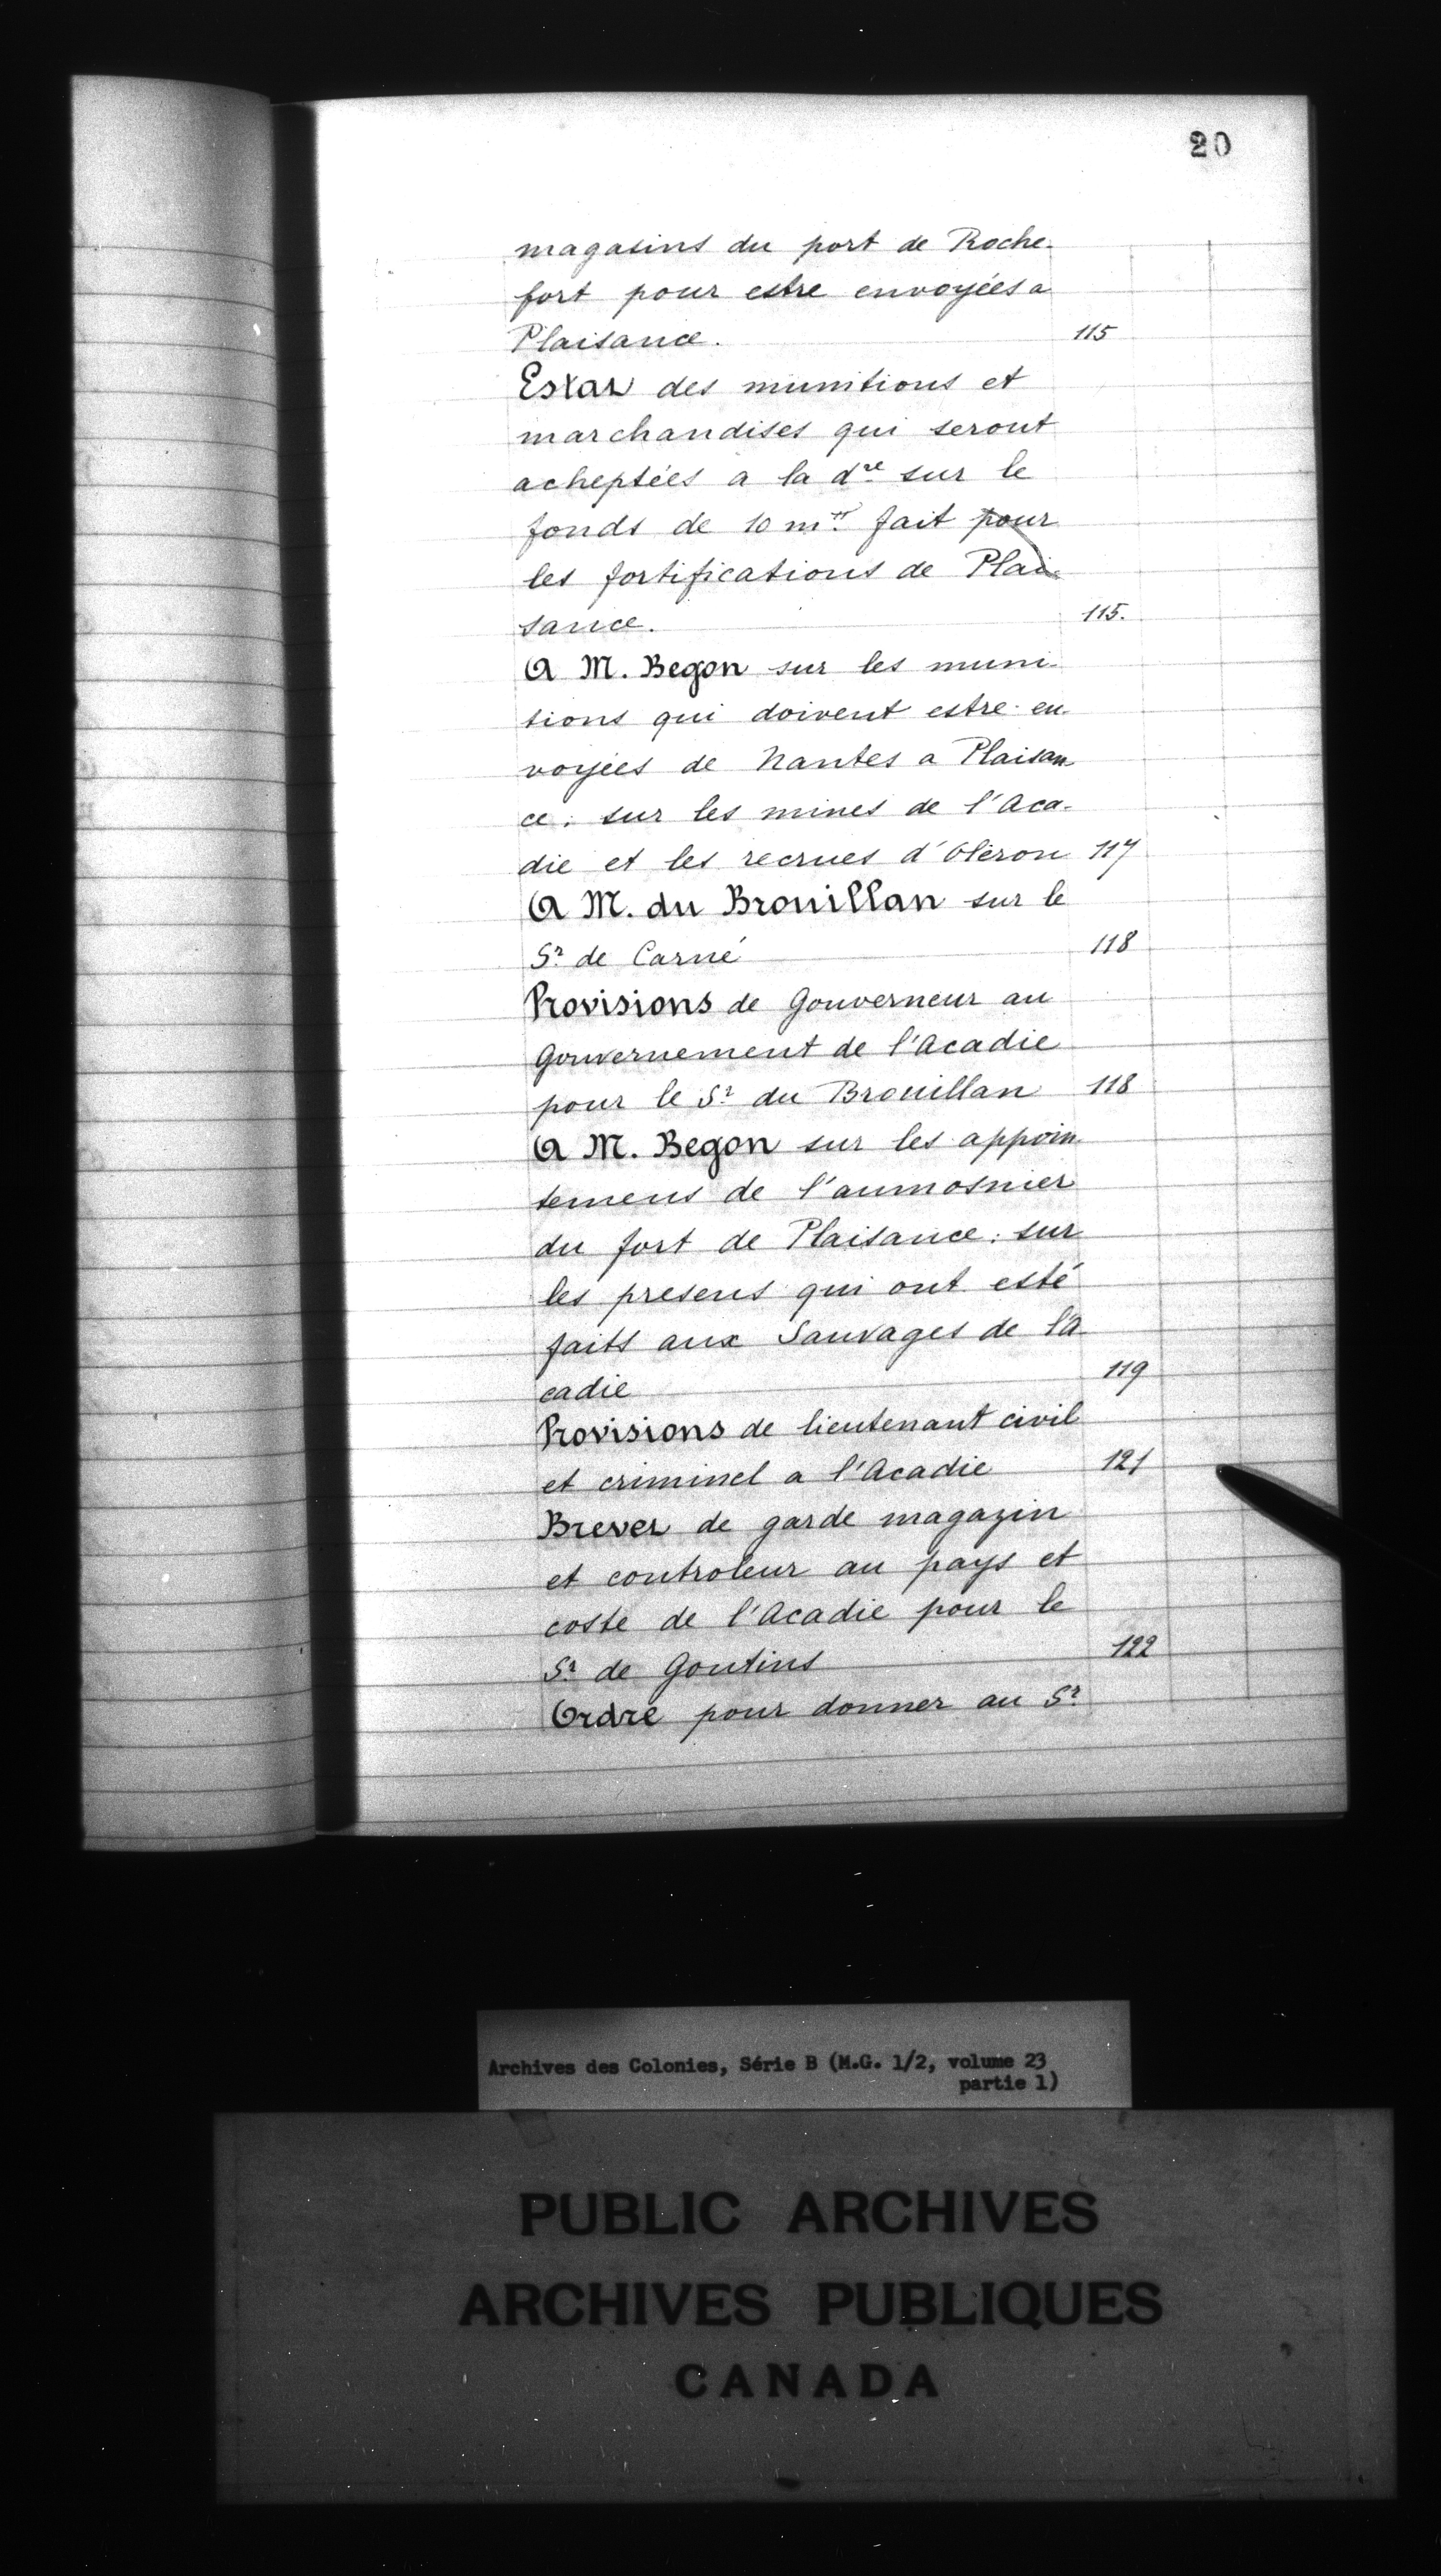 20
magasins du port de Roche-
fort pour estre envoyées a
Plaisance. 115
Estat des munitions et
marchandises qui seront
acheptées a la dre sur le
fonds de 10 m tt fait pour
les fortifications de Plai-
sance. 115.
A M. Begon sur les muni-
tions qui doivent estre en-
voyées de Nantes a Plaisan-
ce: sur les mines de l'Aca-
die et les recrues d'Oléron 117
A M. du Brouillan sur le
Sr de Carné 118
Provisions de Gouverneur au
Gouvernement de l'Acadie
pour le Sr du Brouillan 118
A M. Begon sur les appoin-
temens de l'aumosnier
du fort de Plaisance: sur
les presens qui ont esté
faits aux Sauvages de l'A
cadie 119
Provisions de lieutenant civil
et criminel a l'Acadie 121
Brevet de garde magazin
et controleur au pays et
coste de l'Acadie pour le
Sr de Goutins 122
Ordre pour donner au Sr
Archives des Colonies, Série B (M.G. 1/2, volume 23
partie 1)
PUBLIC ARCHIVES
ARCHIVES PUBLIQUES
CANADA